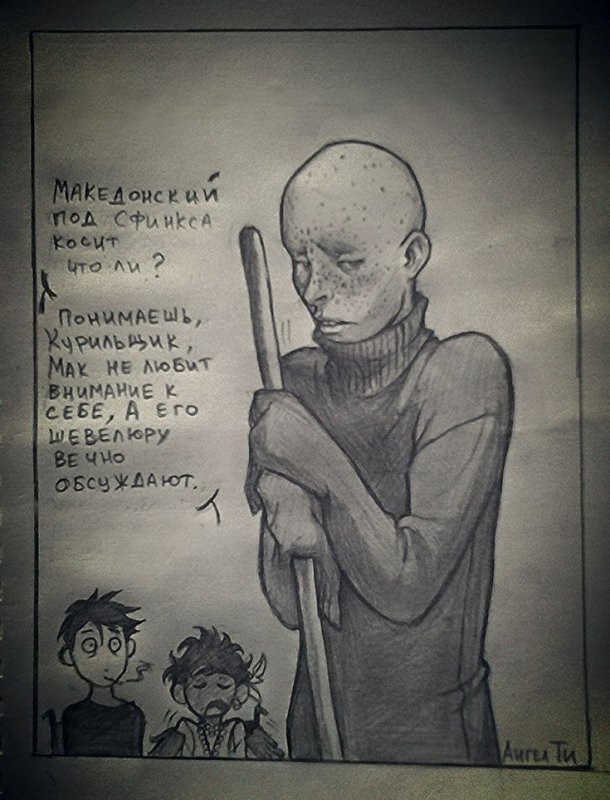 МАКЕДОНСКИЙ
ПОД СФИНКСА
КОСИТ
ЧТО ЛИ?
ПОНИМАЕШЬ,
КУРИЛЬЩИК,
МАК НЕ ЛЮБИТ
ВНИМАНИЕ К
СЕБЕ, А ЕГО
ШЕВЕЛЮРУ
ВЕЧНО
ОБСУЖДАЮТ.
Ангел Ти